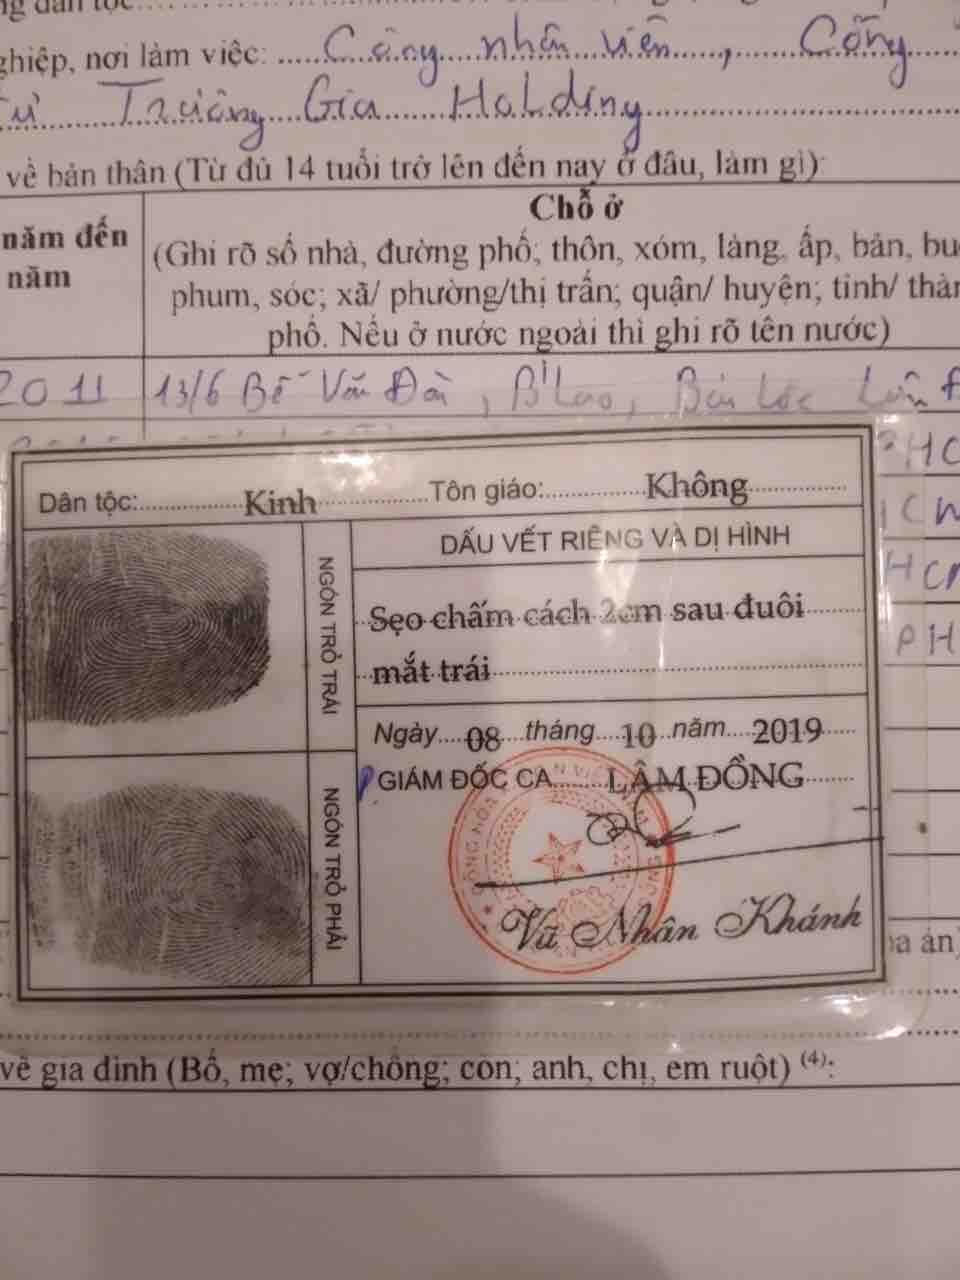 nghiệp, nơi làm việc: Công nhân viên, Công
tư Trường Gia Holding
về bản thân (Từ đủ 14 tuổi trở lên đến nay ở đâu, làm gì):
năm đến
năm
Chỗ ở
(Ghi rõ số nhà, đường phố; thôn, xóm, làng, ấp, bản,
phum, sóc; xã/ phường/thị trấn; quận/ huyện; tỉnh/
phố. Nếu ở nước ngoài thì ghi rõ tên nước)
2011
13/6 Bế Văn Đàn, B'Lao, Bảo Lộc
Dân tộc: Kinh Tôn giáo: Không
NGÓN TRỎ TRÁI
DẤU VẾT RIÊNG VÀ DỊ HÌNH
Sẹo chấm cách 2cm sau đuôi
mắt trái
Ngày 08 tháng 10 năm 2019
GIÁM ĐỐC CA LÂM ĐỒNG
NGÓN TRỎ PHẢI
Vũ Nhân Khánh
về gia đình (Bố, mẹ; vợ/chồng; con; anh, chị, em ruột) (4):